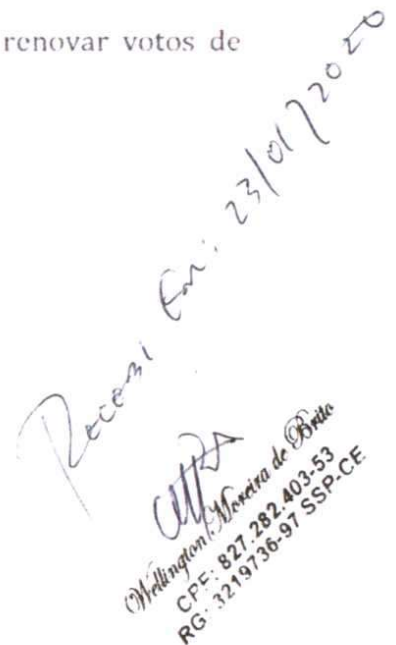 renovar votos de
Recebi Em: 23/01/2020
Wellington Moreira de Brito
CPF: 827.282.403-53
RG: 3219736-97 SSP-CE